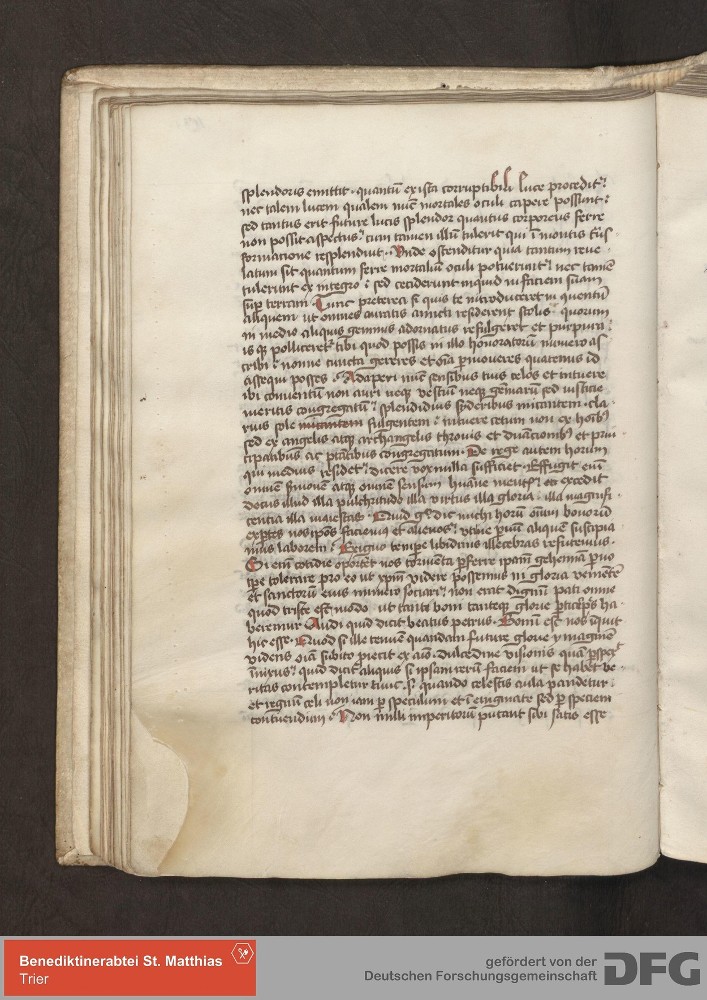 splendoris emittit · quantū ex ista corruptibili luce procedit
nec talem lucem qualem nūc mortales oculi capere possunt :
sed tantus erit future lucis splendor quantus corporeus ferre
non possit aspectus cum tamen illū tulerit qui ī montis
formacione resplenduit · Unde ostenditur quia tantum reue
latum sit quantum ferre mortaliū oculi potuerunt nec tamē
tulerunt ex integro : sed ceciderunt inquid in faciem suam
suꝑ terram · Tunc preterea si quis te introduceret in quentū
aliquem ut omnes auratis amicti residerent stolis · quorum
in medio aliquis gemmis adornatus refulgeret et purpura
is qꝫ polliceret tibi quod possis in illo honoratorū numero as
cribi : nonne cuncta gereres et oīa ꝑmoueres quatenus id
assequi posses · Adaperi nūc sensibus tuis celos et intuere
ibi conuentū non auri neqꝫ vestiū neqꝫ gēmarū sed iusticie
meritis congregatū splendidius sideribus micantem · cla
rius sole micantem fulgentem : intuere cetum non ex hoībꝫ
sed ex angelis atqꝫ archangelis thronis et dn̄acionibꝫ et prin
cipatibus ac ptātibus congregatum · De rege autem horum
qui medius residet dicere vox nulla sufficiet · Effugit enī
omnē sermonē atqꝫ omnē sensum huāne mentis excedit
decus illud illa pulchritudo illa virtus illa gloria · illa magnifi
centia illa maiestas · Quid gͦ dic michi horū omīum bonorū
exptes nos ipos faciemus et alienos ne ꝑuū aliquē suscipia
mus laborem : Exiguo tempe libidinis illecebras refutemus ·
Si enī cotidie oporteret nos tormenta ꝑferre ipam gehennā ꝑuo
tpe tolerare pro eo ut xpm videre possemus in gloria venientē
et sanctorum eius numero sociari non erat dignū pati omne
quod triste est modo · ut tanti boni tanteqꝫ glorie ꝑticipes ha
beremur Audi quid dicit beatus petrus · Bonū est nos inquit
hic esse · Quod si ille tenuē quandam future glorie ymaginē
videns oīa subito piecit ex aīo · dulcedine visionis quā ꝑspex
quid dicet aliquis si ipsam rerū faciem ut se habet ve
ritas contempletur tunc · si quando celestis aula pandetur
et regnū celi non iam ꝑ speculum et ī enigmate sed ꝑ speciem
contuendum · Non nulli imperitorū putant sibi satis esse
Benediktinerabtei St. Matthias
Trier
gefördert von der
Deutschen Forschungsgemeinschaft
DFG